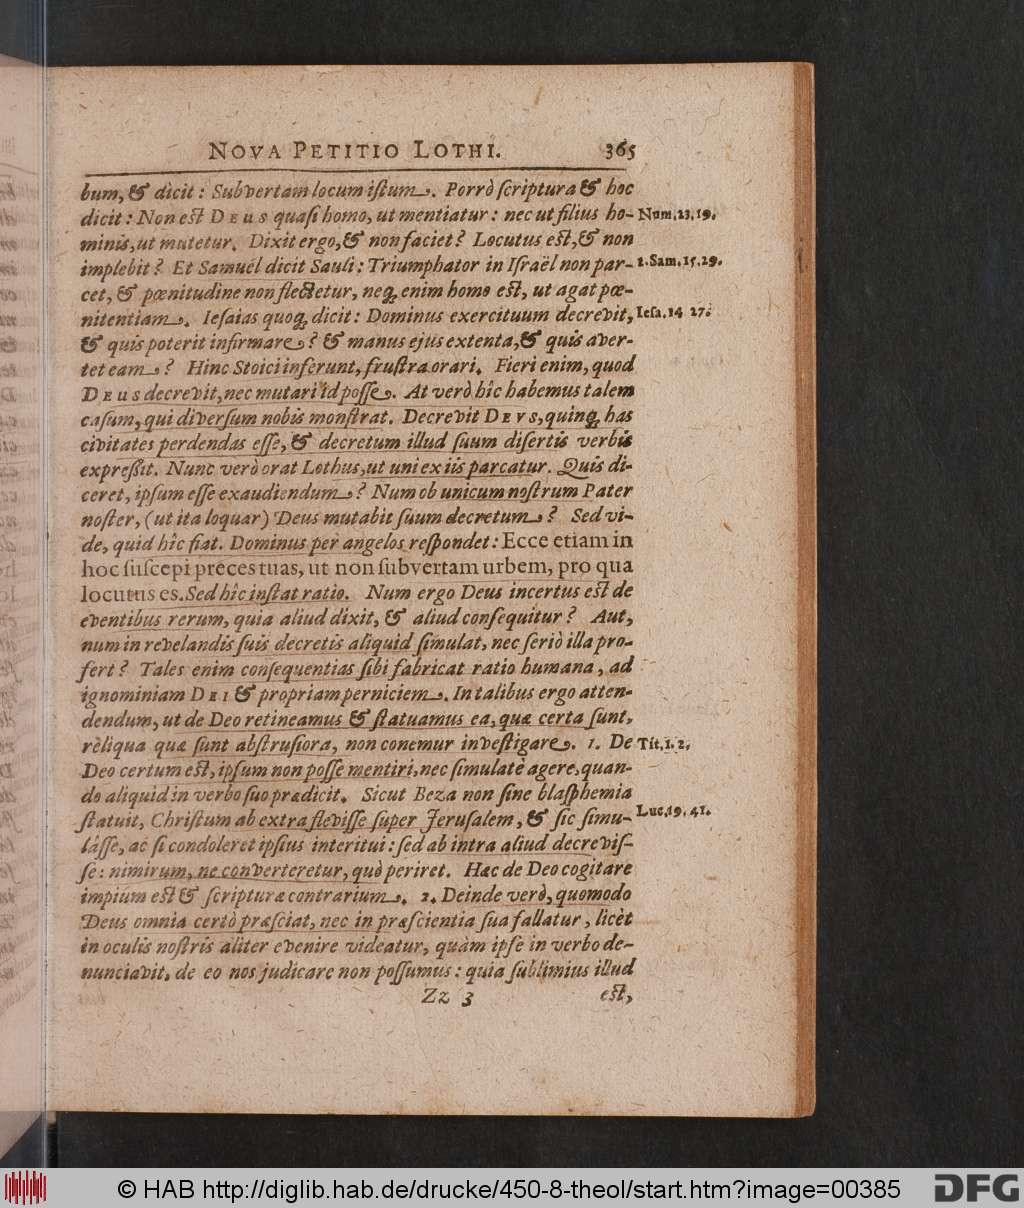 NOVA PETITIO LOTHI. 365
bum, & dicit: Subvertam locum iſtum. Porrò ſcriptura & hoc
dicit: Non eſt DEUS quaſi homo, ut mentiatur: nec ut filius ho- Num. 23. 19.
minis, ut mutetur. Dixit ergo, & non faciet? Locutus eſt, & non
implebit? Et Samuël dicit Sauli: Triumphator in Iſraël non par- 1. Sam. 15. 29.
cet, & pœnitudine non flectetur, neq; enim homo eſt, ut agat pœ-
nitentiam. Ieſaias quoq; dicit: Dominus exercituum decrevit, Ieſa. 14 27.
& quis poterit infirmare? & manus ejus extenta, & quis aver-
tet eam? Hinc Stoici inferunt, fruſtra orari. Fieri enim, quod
DEUS decrevit, nec mutari id poſſe. At verò hîc habemus talem
caſum, qui diverſum nobis monſtrat. Decrevit DEVS, quinq; has
civitates perdendas eſſe, & decretum illud ſuum diſertis verbis
expreßit. Nunc verò orat Lothus, ut uni ex iis parcatur. Quis di-
ceret, ipſum eſſe exaudiendum? Num ob unicum noſtrum Pater
noſter, (ut ita loquar) Deus mutabit ſuum decretum? Sed vi-
de, quid hîc fiat. Dominus per angelos reſpondet: Ecce etiam in
hoc ſuſcepi preces tuas, ut non ſubvertam urbem, pro qua
locutus es. Sed hîc inſtat ratio. Num ergo Deus incertus eſt de
eventibus rerum, quia aliud dixit, & aliud conſequitur? Aut,
num in revelandis ſuis decretis aliquid ſimulat, nec ſeriò illa pro-
fert? Tales enim conſequentias ſibi fabricat ratio humana, ad
ignominiam DEI & propriam perniciem. In talibus ergo atten-
dendum, ut de Deo retineamus & ſtatuamus ea, quæ certa ſunt,
rèliqua quæ ſunt abſtruſiora, non conemur inveſtigare. 1. De Tit. 1. 2.
Deo certum eſt, ipſum non poſſe mentiri, nec ſimulatè agere, quan-
do aliquid in verbo ſuo prædicit. Sicut Beza non ſine blaſphemia
ſtatuit, Chriſtum ab extra fleviſſe ſuper Jeruſalem, & ſic ſimu- Luc. 19. 41.
láſſe, ac ſi condoleret ipſius interitui: ſed ab intra aliud decreviſ-
ſe: nimirum, ne converteretur, quò periret. Hæc de Deo cogitare
impium eſt & ſcripturæ contrarium. 2. Deinde verò, quomodo
Deus omnia certò præſciat, nec in præſcientia ſua fallatur, licèt
in oculis noſtris aliter evenire videatur, quàm ipſe in verbo de-
nunciavit, de eo nos judicare non poſſumus: quia ſublimius illud
Zz 3 eſt,
© HAB http://diglib.hab.de/drucke/450-8-theol/start.htm?image=00385 DFG